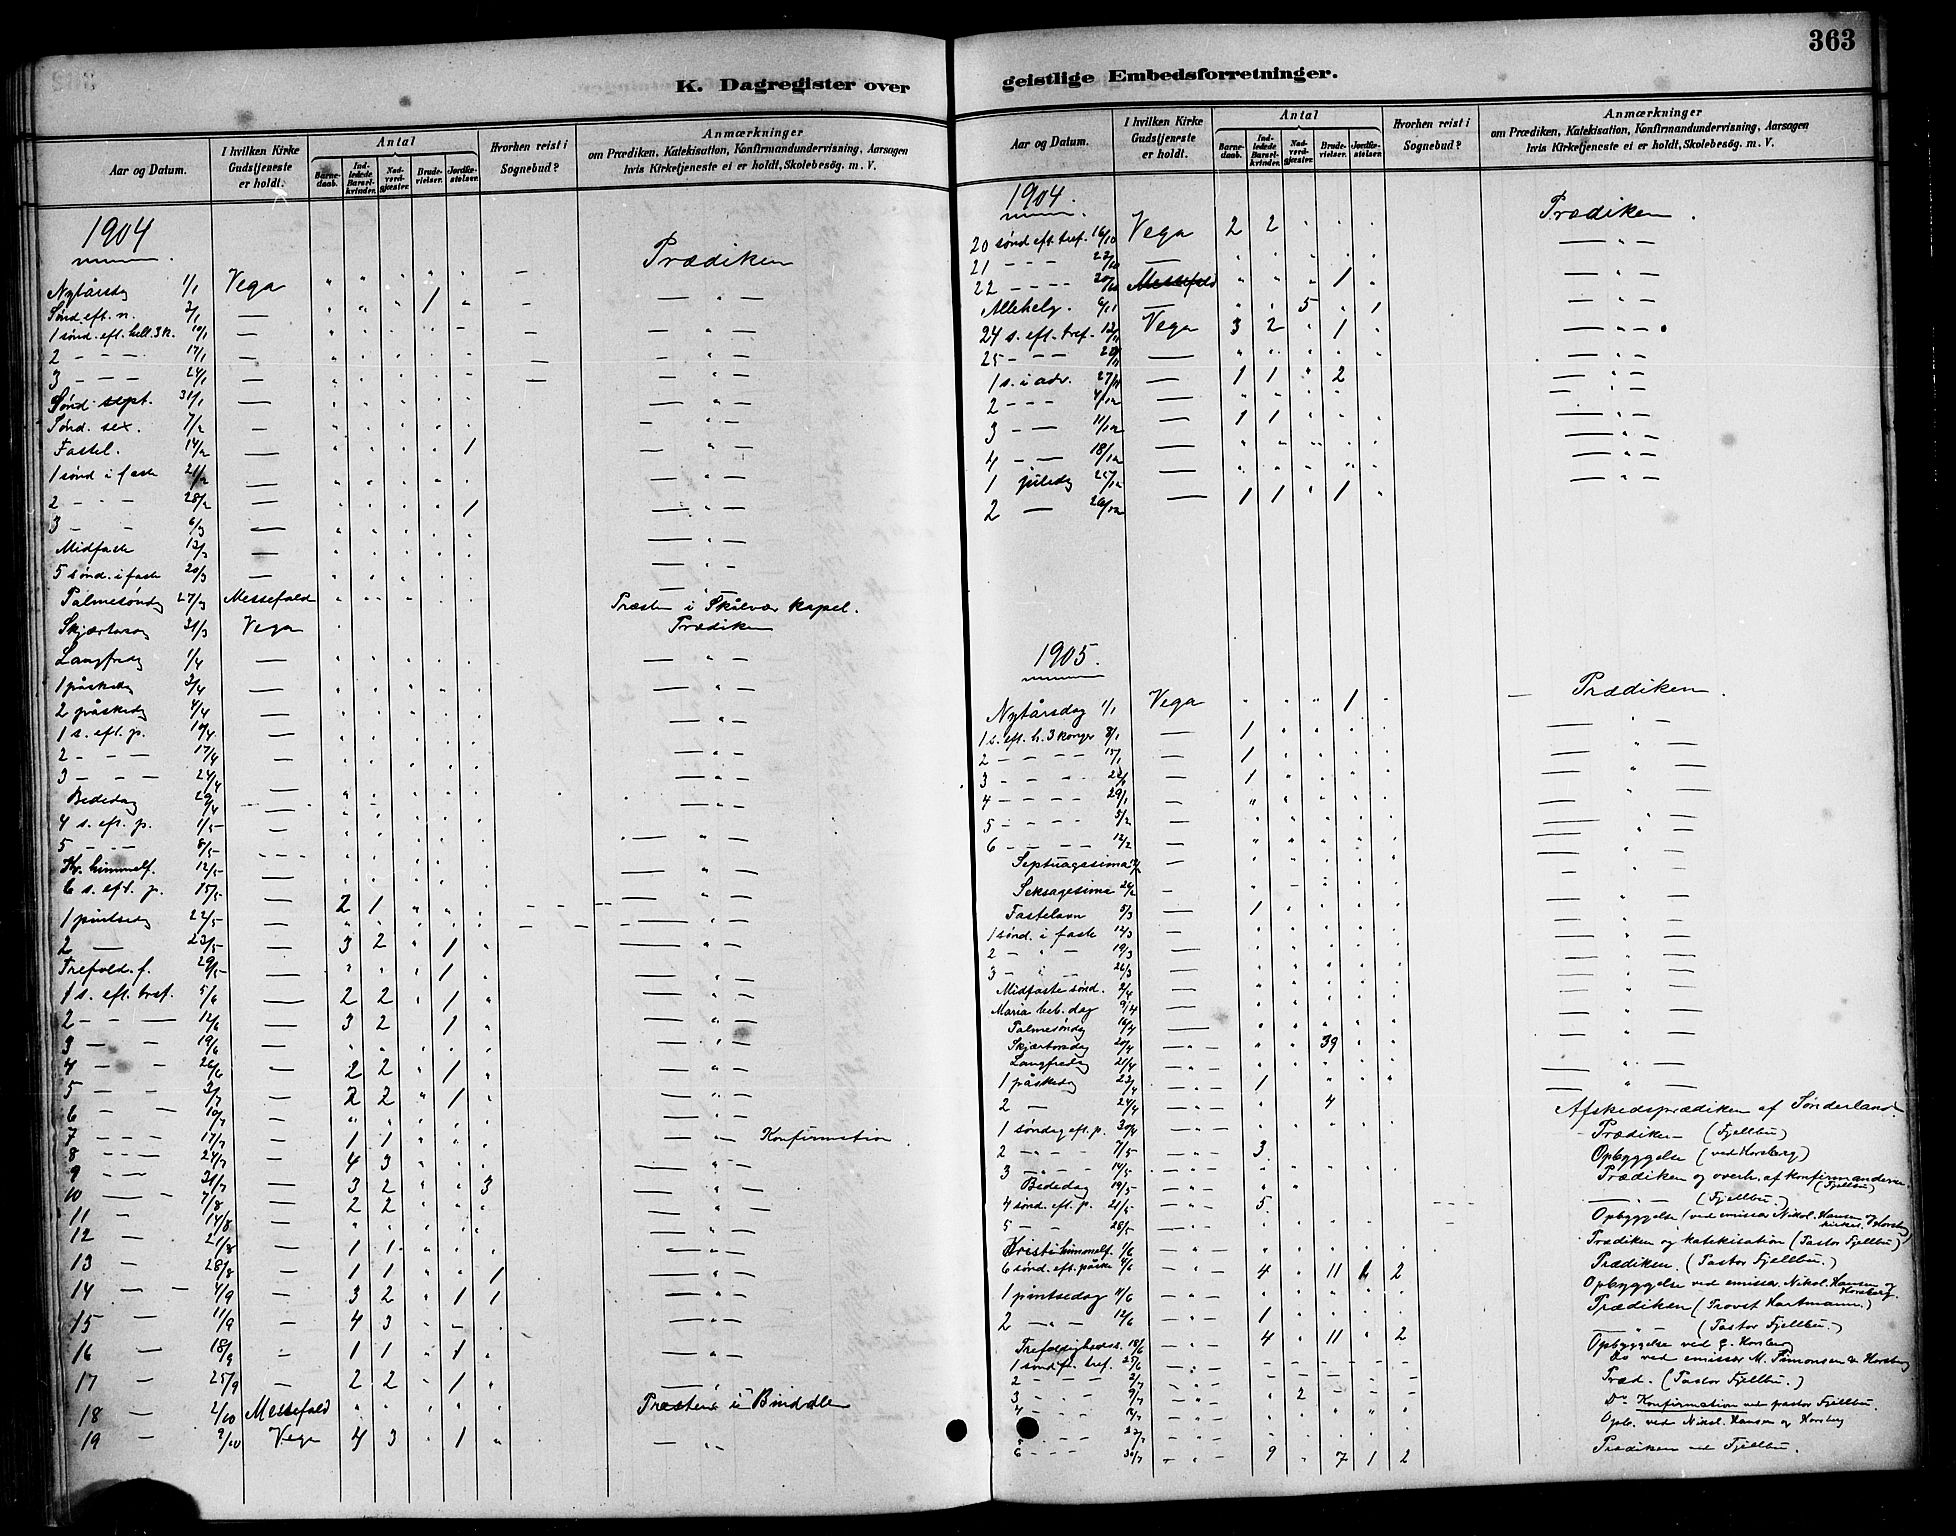 363
K. Dagregister over
geistlige Embedsforretninger.
Aar og Datum.
I hvilken Kirke Gudstjeneste er holdt.
Antal
Barnedaab.
Indledede Barselkvinder.
Nadverdgjæster.
Brudevielser.
Jordfæstelser.
Hvorhen reist i Sognebud?
Anmærkninger
om Prædiken, Katekisation, Konfirmandundervisning, Aarsagen
hvis Kirketjeneste ei er holdt, Skolebesög. m. V.
1904
Prædiken
Nytårsdag 1/1 Vega " " " " "
Sønd. eft. n. 3/1 — " " " 1 " — " —
1 sønd. eft. hell. 3 K. 10/1 — — " —
2 — — — 17/1 — — " —
3 — — — 24/1 — — " —
Sønd. sept. 31/1 — — " —
Sønd. sex. 7/2 — — " —
Fastel. 14/2 — 1 — " —
1 sønd i faste 21/2 — — " —
2 — " — 28/2 — 1 — " —
3 — — 6/3 — — " —
Midfaste 13/3 — — " —
5 sønd. i faste 20/3 — — " —
Palmesøndag 27/3 Messefald Præsten i Skålvær kapel.
Skjærtorsdag 31/3 Vega Prædiken
Langfredag 1/4 — — " —
1 påskedag 3/4 — — " —
2 påskedag 4/4 — — " —
1 s. eft. p. 10/4 — — " —
2 — — — 17/4 — — " —
3 — — — 24/4 — — " —
Bededag 29/4 —
4 s. eft. p. 1/5 — — " —
5 — — — 8/5 — — " —
Kr. himmelf. 12/5 — — " —
6 s. eft. p. 15/5 — 2 1 " " " — " —
1 pintsedag 22/5 — — " —
2 — 23/5 — 3 2 " 1 " — " —
Trefold. f. 29/5 — " " " 1 " — " —
1 s. eft. tref. 5/6 — 2 2 " 1 " — " —
2 — — — 12/6 — 3 2 1 " — " —
3 — — 19/6 — — " —
4 — — 26/6 — 2 2 " 1 " — " —
5 — — 3/7 — 2 2 " 1 " — " —
6 — — 10/7 — — " —
7 — — — 17/7 — 1 1 " " " — " — Konfirmation.
8 — — — 24/7 — 4 3 — " —
9 — — 31/7 — 3 2 " " 3 — " —
10 — — 7/8 — 2 2 " " " — " —
11 — 14/8 — — " —
12 — 21/8 — 1 1 — " —
13 — 28/8 — 1 1 " " 1 — " —
14 — — 4/9 — 3 2 " 1 1 — " —
15 — 11/9 — 4 3 — " —
16 — 18/9 — 1 1 " 1 " — " —
17 — 25/9 — 2 2 " 1 " — " —
18 — 2/10 Messefald Præsten i Binddlen
19 — 9/10 Vega 4 3 " 1 " — " —
Aar og Datum.
I hvilken Kirke Gudstjeneste er holdt.
Antal
Barnedaab.
Indledede Barselkvinder.
Nadverdgjæster.
Brudevielser.
Jordfæstelser.
Hvorhen reist i Sognebud?
Anmærkninger
om Prædiken, Katekisation, Konfirmandundervisning, Aarsagen
hvis Kirketjeneste ei er holdt, Skolebesög. m. V.
1904.
Prædiken.
20 sønd eft. tref. 16/10 Vega 2 2 " " " — " —
21 — — — 23/10 — — " —
22 — — — 30/10 Messefald " " " 1 " — " —
Allehelg. 6/11 — " " 5 " 1 — " —
24 s. eft. tref. 13/11 Vega 3 2 " 1 " — " —
25 — — — 20/11 — — " —
1 s. i adv. 27/11 — 1 1 " 2 — " —
2 — — — 4/12 — — " —
3 — — 11/12 — 1 1 " " " — " —
4 — — 18/12 — — " —
1 juledag 25/12 — — " —
2 — 26/12 — 1 1 " 1 " — " —
1905.
Prædiken.
Nytårsdag 1/1 Vega " " " 1 "
1 s. eft. h. 3 konger 8/1 — 1 — " —
2 — — — — 15/1 — 1 — " —
3 — — — 22/1 — 1 — " —
4 — — — — 29/1 — — " —
5 — — — — 5/2 — — " —
6 — — — — 12/2 — — " —
Septuagesima — — " —
Seksagesima 26/2 — — " —
Fastelavn 5/3 — 1 — " —
1 sønd. i faste 12/3 — — " —
2 — " — 19/3 — — " —
3 — " — 26/3 — — " —
Midfaste sønd. 2/4 — — " —
Maria beb. dag 9/4 — — " —
Palmesøndag 16/4 — — " —
Skjærtorsdag 20/4 — " — " " 39 " " — " —
Langfredag 21/4 — " — — " —
1 påskedag 23/4 — " — 1 — " —
2 — 24/4 — " — 4 Afskedsprædiken af Sønderland
1 søndag eft. p. 30/4 — " — Prædiken — (Fjellbu)
2 — " — 7/5 — " — 3 Opbyggelse (ved Horsberg)
3 — " — 14/5 — " — Prædiken og overh. af konfirmanderne (Fjellbu)
Bededag 19/5 — " — — " — (Fjellbu)
4 sønd. eft. p. 21/5 — " — 5 Opbyggelse (ved emissær Nikol. Hansen og kirkes. Horsberg)
5 — — 28/5 — " — Prædiken og katekisation (Pastor Fjellbu)
Kristi himmelf. 1/6 — " — Prædiken. (Pastor Fjellbu.)
6 sønd. eft. påske 4/6 — " — 4 " 11 2 Opbyggelse ved emissær Nikol. Hansen og Horsberg.
1 pintsedag 11/6 — " — Prædiken (Provst Hartmann.)
2 — " — 12/6 — " — 1 — " — (Pastor Fjellbu.)
Trefoldighedss. 18/6 — " — 4 " 11 " 2 Opbyggelse ved E. Horsberg
1 sønd. eft. tref. 25/6 — " — Do ved emissær M. Simonsen & Horsberg
2 — — — 2/7 — " — Præd. (Pastor Fjellbu.)
3 — — 9/7 — " — 2 Do Konfirmation ved pastor Fjellbu.
4 — — — " — Opb. ved Nikol. Hansen og Horsberg
6 — — — 30/7 — " — 9 " 7 1 2 Prædiken ved Fjellbu.